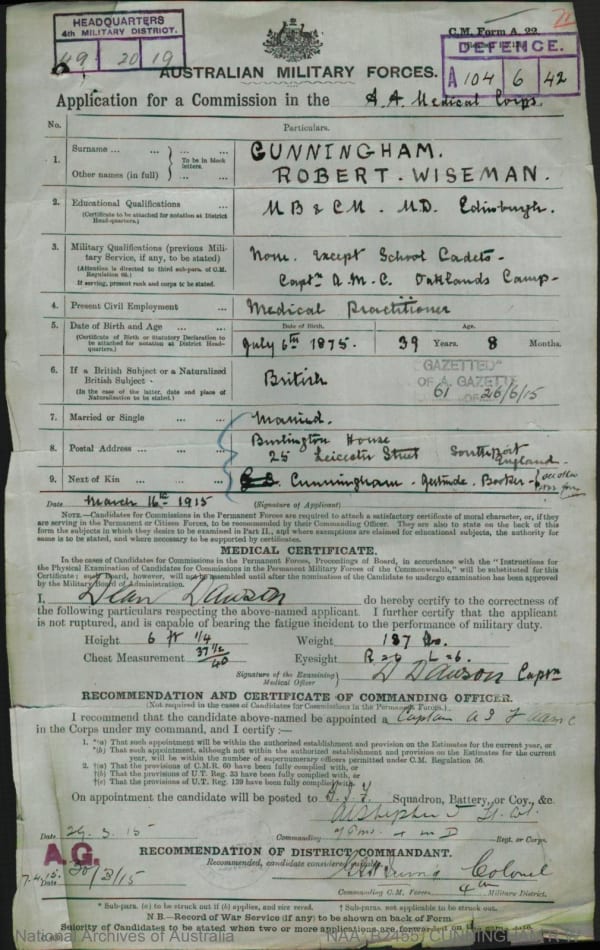 HEADQUARTERS
4th MILITARY DISTRICT.
49 20 19
C.M. Form A. 22.
DEFENCE.
A 104 6 42
AUSTRALIAN MILITARY FORCES.
Application for a Commission in the A. A. Medical Corps.
No. Particulars.
1. Surname ... ... ... ... To be in block letters. CUNNINGHAM.
Other names (in full) ROBERT. WISEMAN.
2. Educational Qualifications ... M B & C M. M.D. Edinburgh.
(Certificate to be attached for notation at District Head-quarters.)
3. Military Qualifications (previous Military Service, if any, to be stated) None. Except School Cadets -
(Attention is directed to third sub-para. of C.M. Regulation 66.)
If serving, present rank and corps to be stated.
Captn A. M. C. Oaklands Camp -
4. Present Civil Employment ... Medical Practitioner
5. Date of Birth and Age ... ... Date of Birth. Age.
(Certificate of Birth or statutory Declaration to be attached for notation at District Head-quarters.)
July 6th 1875. 39 Years. 8 Months.
6. If a British Subject or a Naturalized British Subject British
(In the case of the latter, date and place of Naturalization to be stated.)
GAZETTED
OF A. GAZETTE
61 26/6/15
7. Married or Single ... ... Married.
8. Postal Address ... ... ... Burlington House
25 Leicester Street Southport
England
9. Next of Kin ... ... ... Cunningham - Gertrude. Booker -
Date March 16th 1915 (Signature of Applicant)
NOTE.—Candidates for Commissions in the Permanent Forces are required to attach a satisfactory certificate of moral character, or, if they are serving in the Permanent or Citizen Forces, to be recommended by their Commanding Officer. They are also to state on the back of this form the subjects in which they desire to be examined in Part II., and where exemptions are claimed for educational subjects, the authority for same is to be stated, and where necessary to be supported by certificates.
MEDICAL CERTIFICATE.
In the cases of Candidates for Commissions in the Permanent Forces, Proceedings of Board, in accordance with the "Instructions for the Physical Examination of Candidates for Commissions in the Permanent Military Forces of the Commonwealth," will be substituted for this Certificate; such Board, however, will not be assembled until after the nomination of the Candidate to undergo examination has been approved by the Military Board of Administration.
I, Dean Dawson do hereby certify to the correctness of
the following particulars respecting the above-named applicant. I further certify that the applicant
is not ruptured, and is capable of bearing the fatigue incident to the performance of military duty.
Height 6 ft 1/4 Weight 187 lbs.
Chest Measurement 37 1/2 / 40 Eyesight R = 6 L = 6.
Signature of the Examining Medical Officer D Dawson Captn
RECOMMENDATION AND CERTIFICATE OF COMMANDING OFFICER.
(Not required in the cases of Candidates for Commissions in the Permanent Forces.)
I recommend that the candidate above-named be appointed a Captain
in the Corps under my command, and I certify :—
1. *(a) That such appointment will be within the authorized establishment and provision on the Estimates for the current year, or
*(b) That such appointment, although not within the authorized establishment and provision on the Estimates for the current year, will be within the number of supernumerary officers permitted under C.M. Regulation 56.
2. †(a) That the provisions of C.M.R. 60 have been fully complied with, or
†(b) That the provisions of U.T. Reg. 33 have been fully complied with, or
†(c) That the provisions of U.T. Reg. 139 have been fully complied with.
On appointment the candidate will be posted to Squadron, Battery, or Coy., &c.
Date 29. 3. 15 Commanding Regt. or Corps.
RECOMMENDATION OF DISTRICT COMMANDANT.
A.G. Recommended, candidate considered suitable
Date 30/3/15 Colonel
Commanding C.M. Forces, 4th Military District.
* Sub-para. (a) to be struck out if (b) applies, and vice versâ. † Sub-paras. not applicable to be struck out.
N.B.—Record of War Service (if any) to be shown on back of Form.
Seniority of Candidates to be stated when two or more applications are forwarded on the same date.
National Archives of Australia